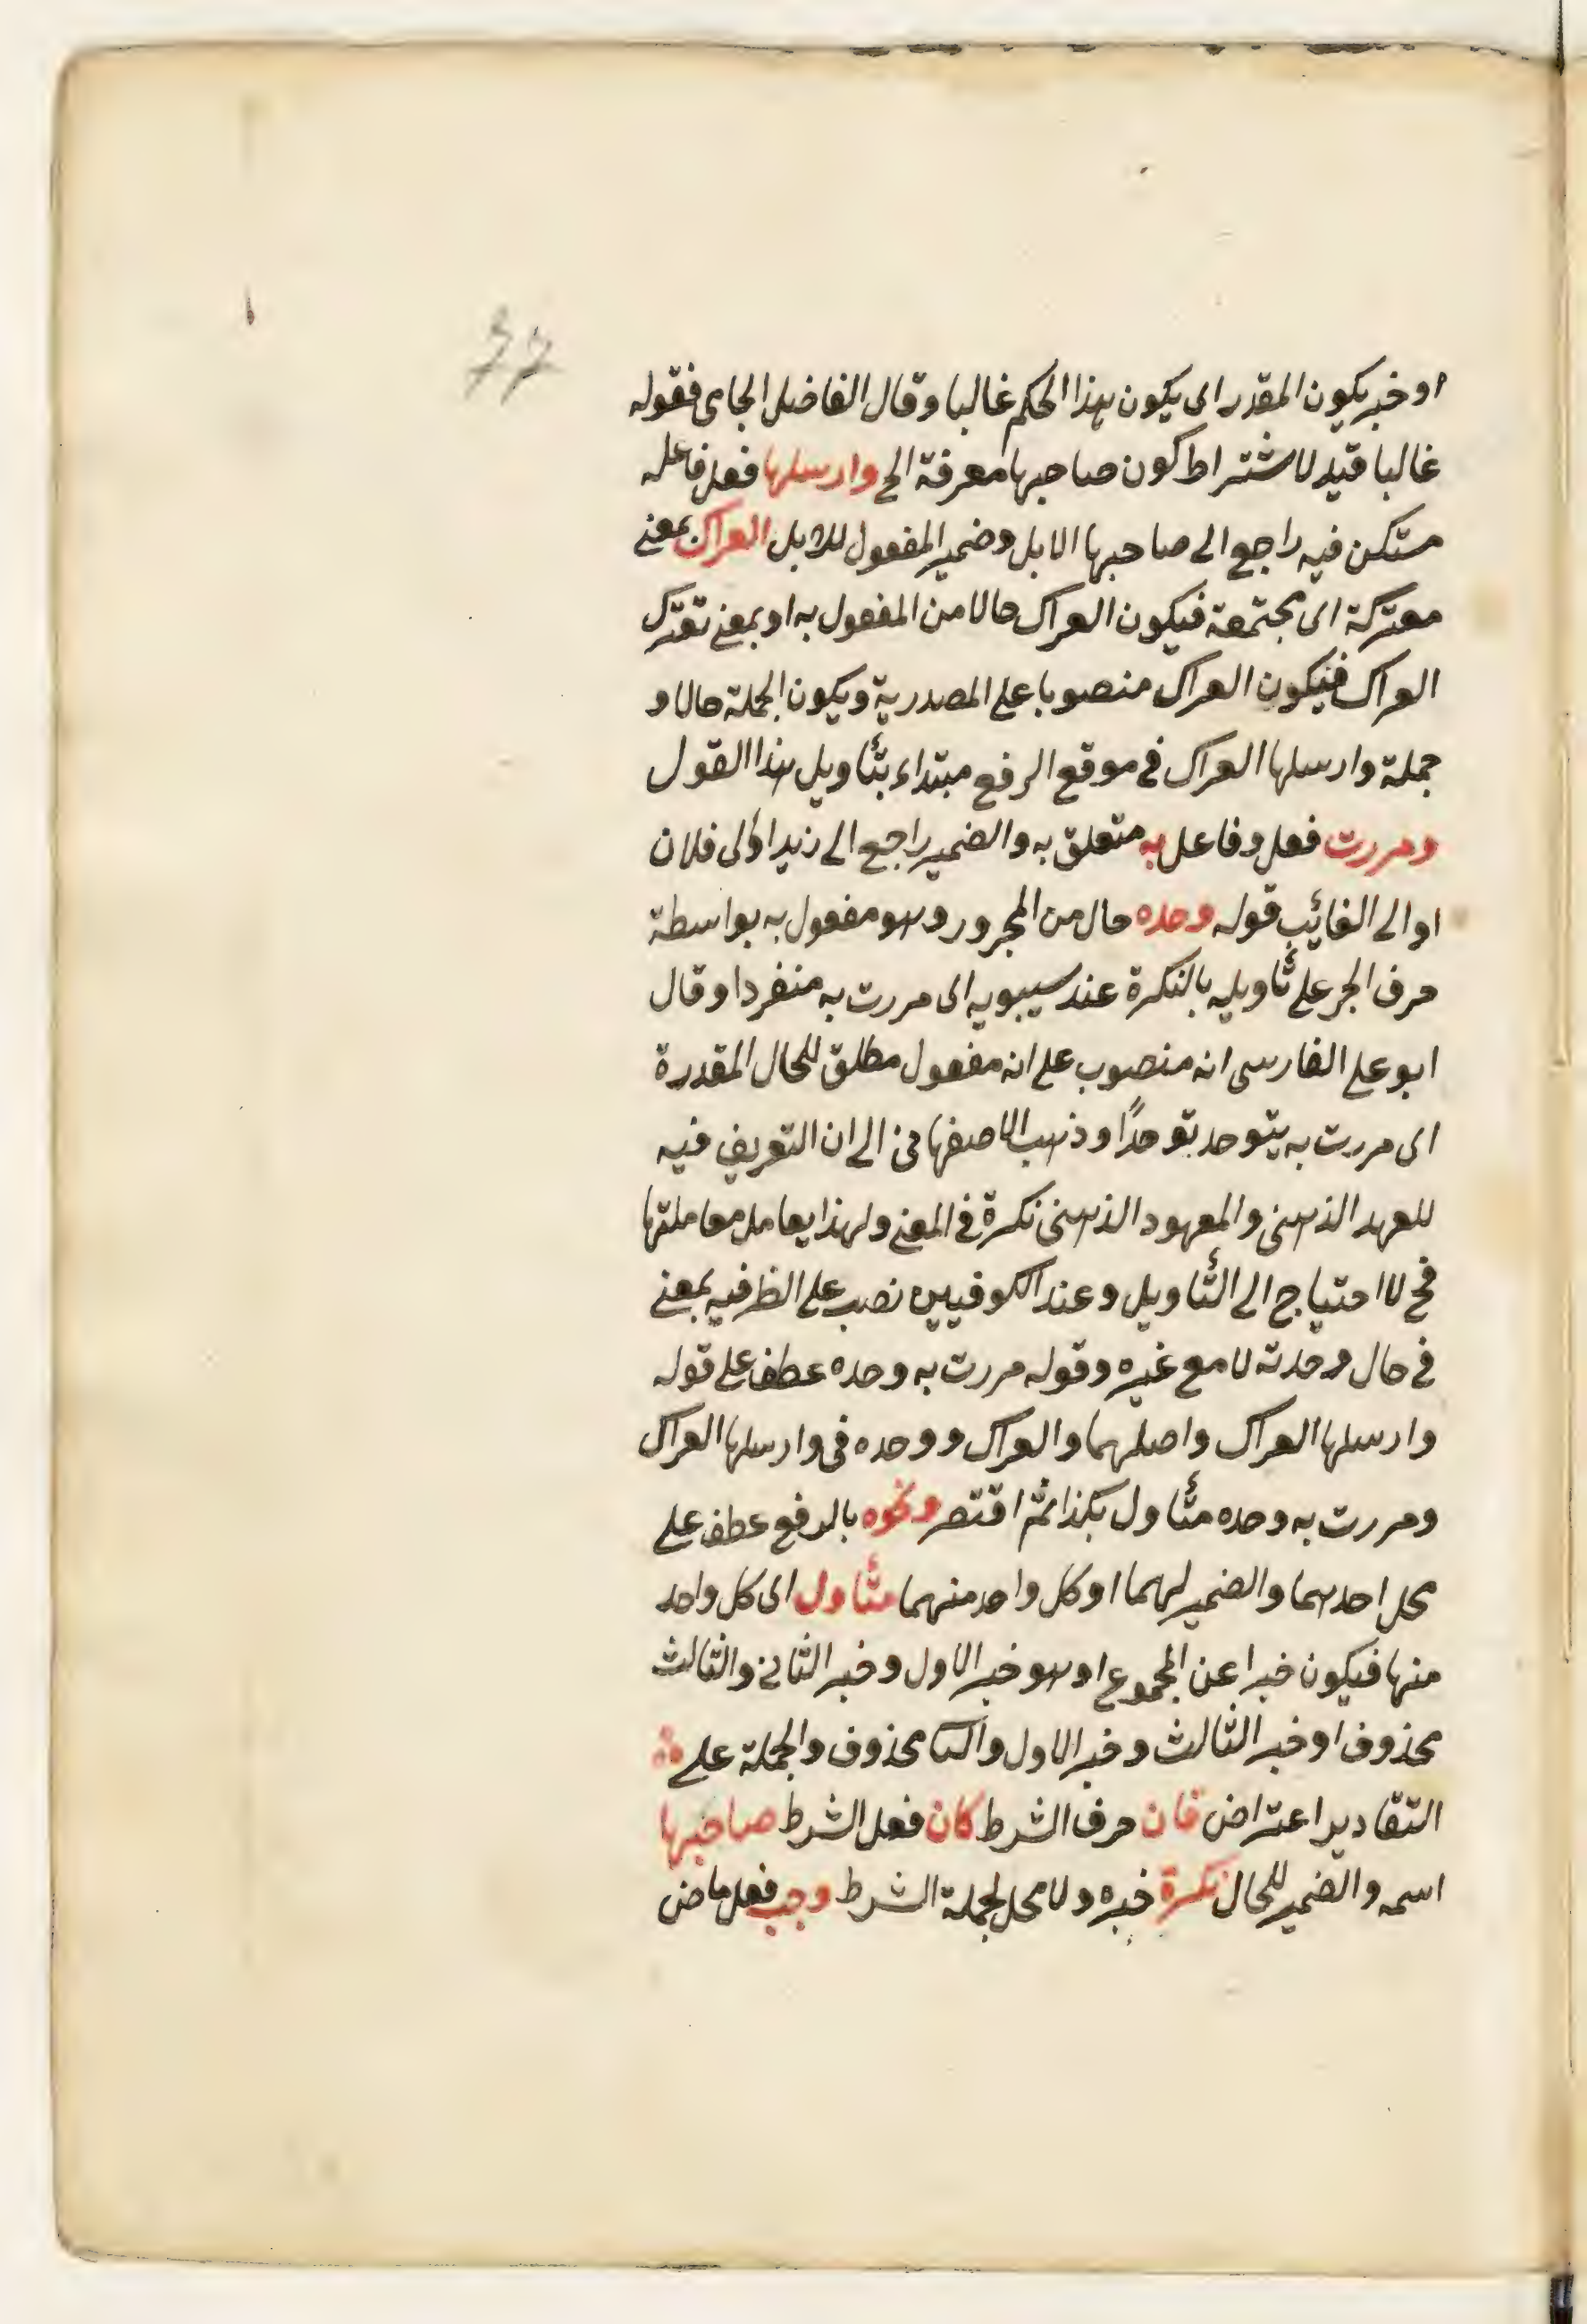 77
او خبر يكون المقدر اى يكون هذا الحكم غالبا وقال الفاضل الجامى فقوله
غالبا قيد لاشتراط كون صاحبها معرفة الخ وارسلها فعل فاعله
مستكن فيه راجع الى صاحبها الابل وضمير المفعول للابل العراك بمعنى
معتركة اى مجتمعة فيكون العراك حالا من المفعول به او بمعنى تعترك
العراك فيكون العراك منصوبا على المصدرية ويكون الجملة حالا و
جملة وارسلها العراك فى موقع الرفع مبتداء بتأويل هذا القول
ومررت فعل وفاعل به متعلق به والضمير راجع الى زيد او الى فلان
او الى الغائب قوله وحده حال من المجرور وهو مفعول به بواسطة
حرف الجر على تأويله بالنكرة عند سيبويه اى مررت به منفردا وقال
ابو على الفارسى انه منصوب على انه مفعول مطلق للحال المقدرة
اى مررت به يتوحد توحدًا وذهب الاصفهانى الى ان التعريف فيه
للعهد الذهنى والمعهود الذهنى نكرة فى المعنى ولهذا يعامل معاملتها
فح لا احتياج الى التأويل وعند الكوفيين نصب على الظرفيه بمعنى
فى حال وحدته لا مع غيره وقوله مررت به وحده عطف على قوله
وارسلها العراك واصلهما والعراك ووحده فى وارسلها العراك
ومررت به وحده متأول بكذا ثم اقتصر ونحوه بالرفع عطف على
محل احدهما والضمير لهما او كل واحد منهما متأول اى كل واحد
منها فيكون خبرا عن المجموع او هو خبر الاول وخبر الثانى والثالث
محذوف او خبر الثالث وخبر الاول والثا محذوف والجملة على
التقادير اعتراض فان حرف الشرط كان فعل الشرط صاحبها
اسمه والضمير للحال نكرة خبره ولا محل لجملة الشرط وجب فعل ماض